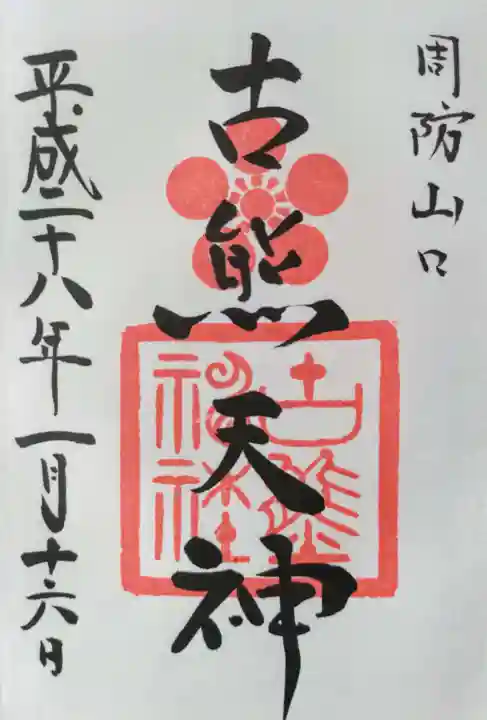 周防山口
古熊天神
古熊
神社
平成二十八年一月十六日